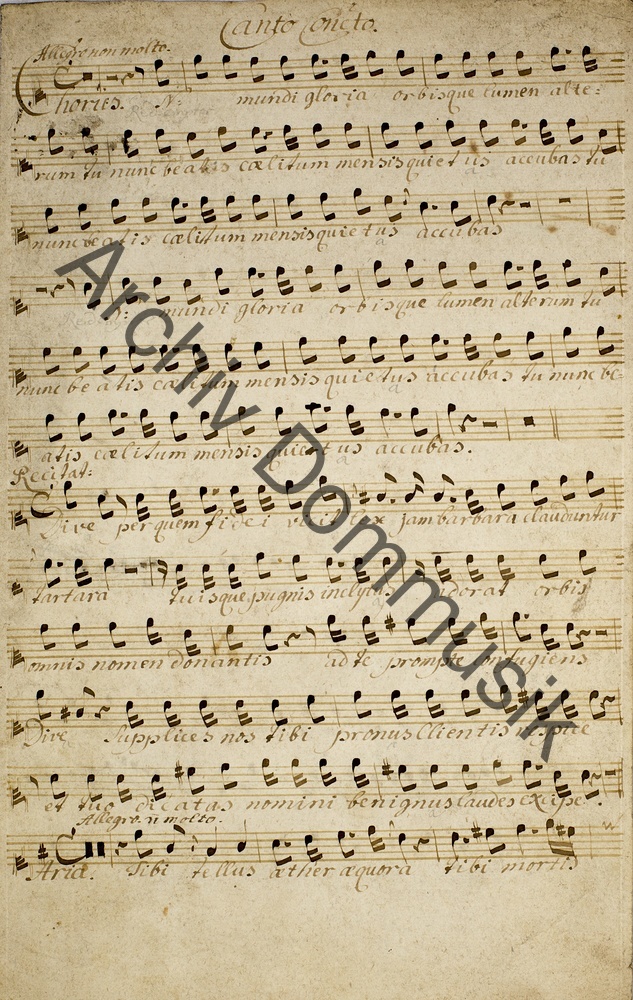 Canto Conc:to.
Allegro non molto.
Chorus. N: mundi gloria orbisque lumen alte:
rum tu nunc beatis cælitum mensis quietus accubas tu
nunc beatis cælitum mensis quietus accubas
N: mundi gloria orbisque lumen alterum tu
nunc be atis cælitum mensis quietus accubas tu nunc be:
atis cælitum mensis quietus accubas.
Recitat:
Dive per quem fidei vicit lex jam barbara clauduntur
tartara tuisque pugnis inclytus adorat orbis
omnis nomen donantis ad te prompte confugiens
Dive supplices nos tibi pronus Clientis
et tuo dicatas nomini benignus laudes excipe.
Allegro. n molto.
Aria. Tibi tellus æther æquora tibi mortis
Archiv Dommusik